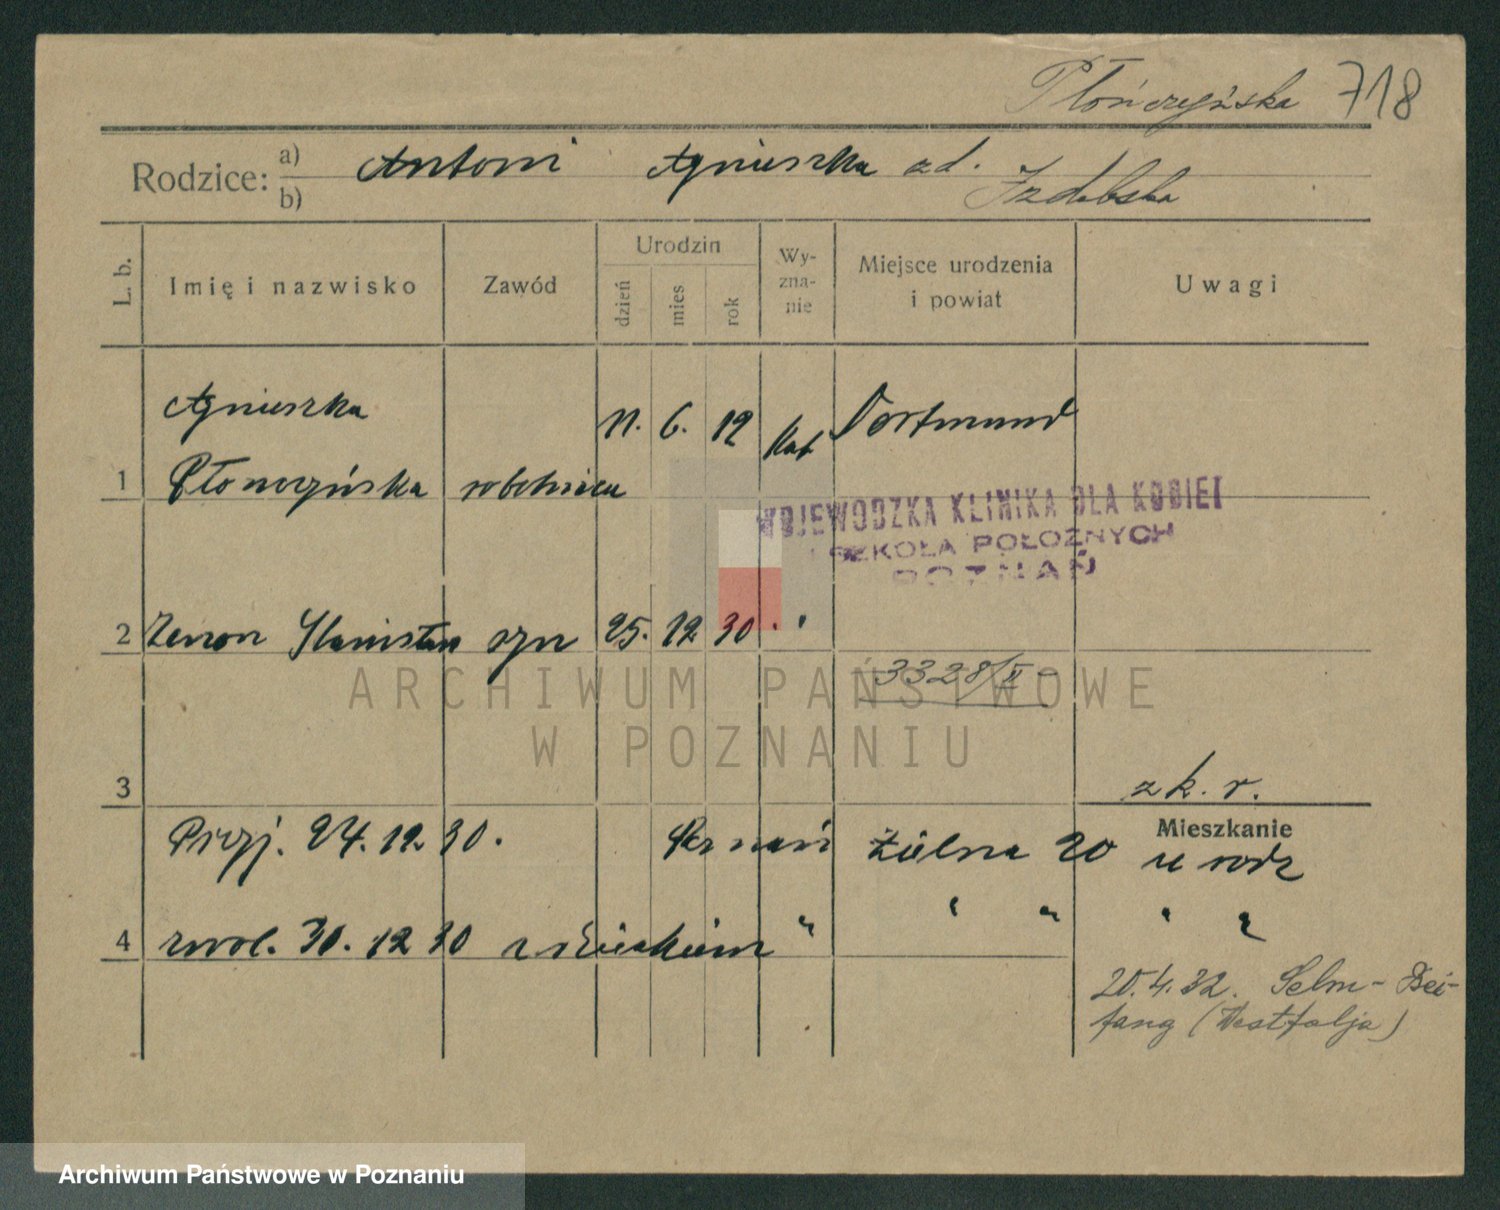 Płończyńska 718
Rodzice: a) b) Antoni Agnieszka zd. Izdebska
L. b. Imię i nazwisko Zawód Urodzin dzień mies rok Wy-zna-nie Miejsce urodzenia i powiat Uwagi
Agnieszka 11. 6. 12 kat Dortmund
1 Płonczyńska robotnica
WOJEWÓDZKA KLINIKA DLA KOBIET
I SZKOŁA POŁOŻNYCH
POZNAŃ
2 Zenon Stanisław syn 25. 12 30 " "
3328/II -
ARCHIWUM PAŃSTWOWE
W POZNANIU
3 zk. r.
Mieszkanie
Przyj. 24. 12. 30. Poznań Żólna 20 u rodz
4 zwol. 30. 12 30 z dzieckiem " " " " "
20. 4. 32. Selm - Bei-
fang (Westfalja)
Archiwum Państwowe w Poznaniu